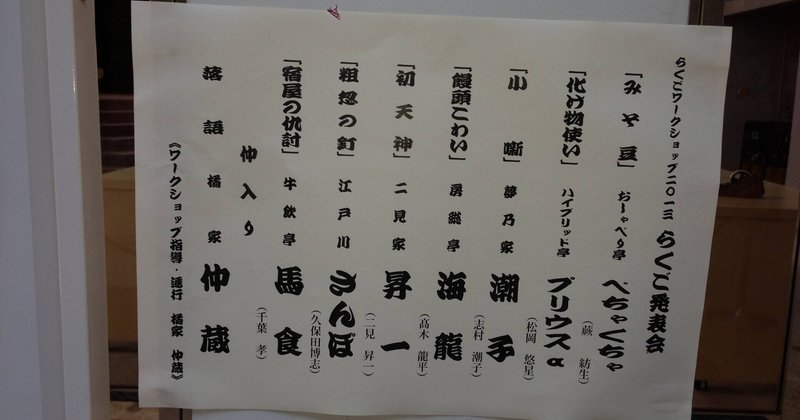 らくごワークショップ二〇一三 らくご発表会
「みそ豆」 おしゃべり亭 ぺちゃくちゃ
(蕨 紡生)
「化け物使い」 ハイブリッド亭 プリウスα
(松岡 悠星)
「小噺」 夢乃家 潮子
(志村 潮子)
「饅頭こわい」 房総亭 海龍
(高木 龍平)
「初天神」 二見家 昇一
(二見 昇一)
「粗忽の釘」 江戸川 さんぽ
(久保田博志)
「宿屋の仇討」 牛飲亭 馬食
(千葉 孝)
仲入り
落語 橘家 仲蔵
《ワークショップ指導・進行 橘家 仲蔵》